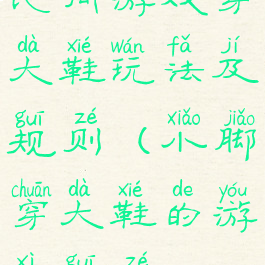 游戏穿
dà xié wán fǎ jí
大鞋玩法及
guī zé xiǎo jiǎo
规则（小脚
chuān dà xié de yóu
穿大鞋的游
xì guī zé